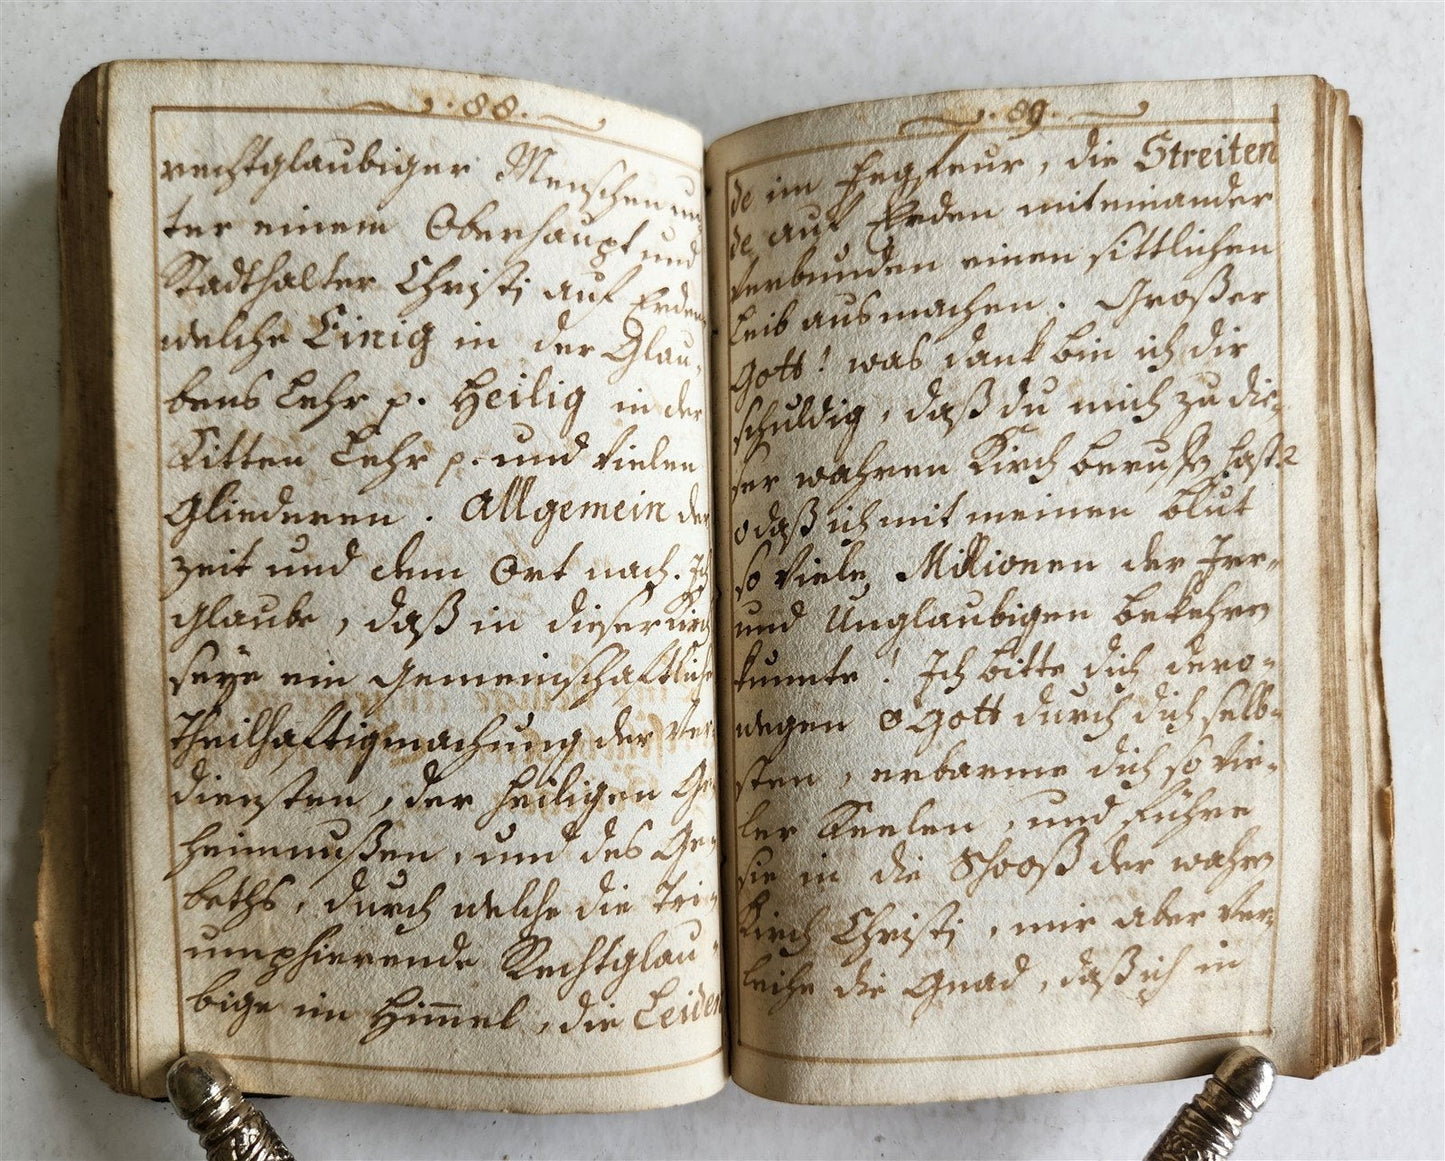 88.
rechtglaubiger Menschen un
ter einem Oberhaupt und
Stadthalter Christi auf Erden
welche Einig in der Glau,
bens Lehr p. Heilig in der
Sitten Lehr p. und vielen
Gliederen. Allgemein der
Zeit und dem Ort nach. Ich
glaube, daß in dieser Kirch
seÿe ein gemeinschaftliche
Theilhaftigmachung der Ver,
diensten, der heiligen Ge,
heimnußen, und des Ge,
beths, durch welche die Tri,
umphierende Rechtglau,
bige im Himmel, die Leiden
89.
de im Fegfeur, die Streiten
de auf Erden miteinander
verbunden einen sittlichen
Leib ausmachen. Großer
Gott! was dank bin ich dir
schuldig, daß du mich zu die-
ser wahren Kirch beruffen hast?
O daß ich mit meinen Blut
so viele Millionen der Irr-
und Unglaubigen bekehren
kunnte! Ich bitte dich dero-
wegen O Gott durch dich selb-
sten, erbarme dich so vie-
ler Seelen, und führe
sie in die Schooß der wahren
Kirch Christi, mir aber ver-
leihe die Gnad, daß ich in